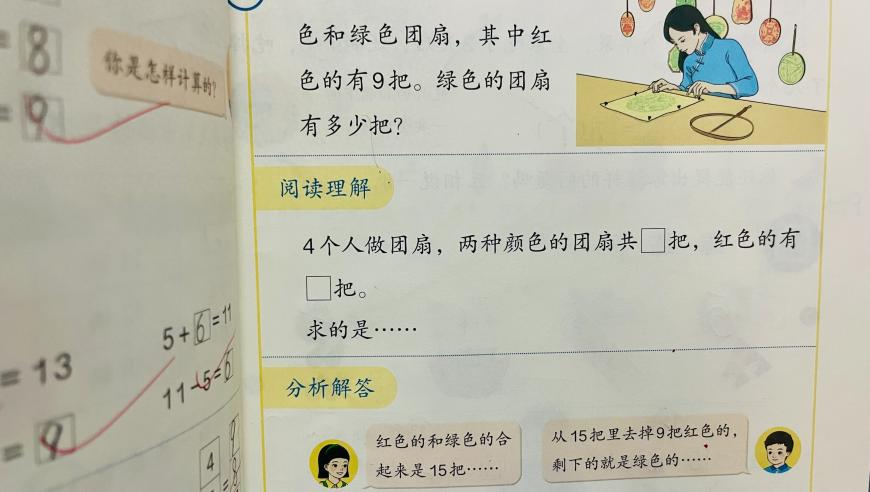 = 8
= 9
你是怎样计算的？
= 13
= 9
5+6=11
11-5=6
4
9
色和绿色团扇，其中红
色的有9把。绿色的团扇
有多少把？
阅读理解
4个人做团扇，两种颜色的团扇共□把，红色的有
□把。
求的是……
分析解答
红色的和绿色的合
起来是15把……
从15把里去掉9把红色的，
剩下的就是绿色的……